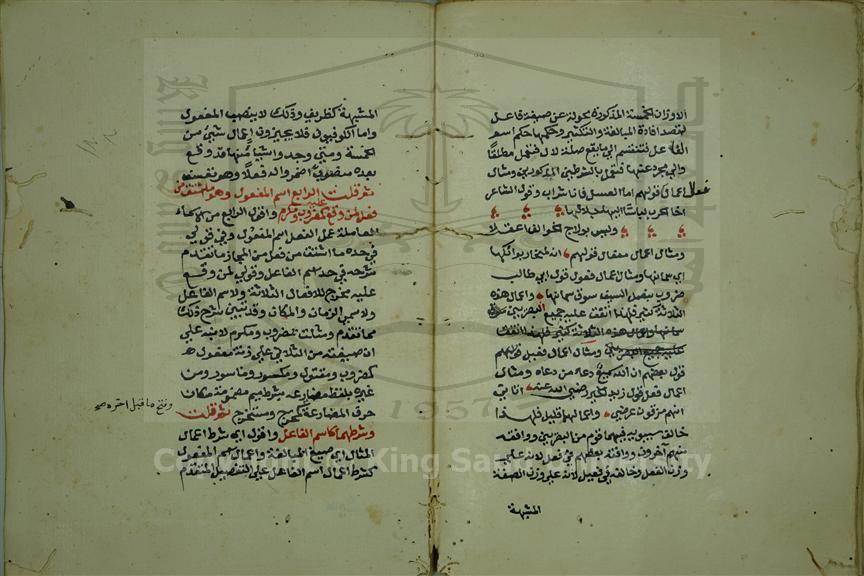 الاوزان الخمسة المذكورة محولة عن صيغة فاعل
لقصد افادة المبالغة والتكثير وحكمها حكم اسم
الفاعل فتنقسم الى ما يقع صلة لال فتعمل مطلقا
والى مجرد عنها فتعمل بالشرطين المذكورين ومثال
اعمال فعال قولهم اما العسل فانا شراب وقول الشاعر
اخا الحرب لباسا اليها جلالها
وليس بولاج الخوالف اعقلا
ومثال اعمال مفعال قولهم انه لمنحار بوائكها
اى سمانها ومثال اعمال فعول قول ابى طالب
ضروب بنصل السيف سوق سمانها واعمال هذه
الثلاثة كثير فلهذا اتفق عليه جميع البصريين
ومثال اعمال فعيل قولهم
قول بعضهم ان الله سميع دعاء من دعاه ومثال
اعمال فعل قول زيد الخير رضى الله عنه اتانى
انهم مزقون عرضى واعمالهما قليل فلهذا
خالف سيبويه فيهما قوم من البصريين ووافقه
منهم آخرون ووافقه بعضهم فى فعل لانه على
وزن الفعل وخالفه فى فعيل لانه على وزن الصفة
المشبهة
المشبهة كظريف وذلك لا ينصب المفعول
واما الكوفيون فلا يجيزون اعمال شىء من
الخمسة ومتى وجدوا شيا منها قد وقع
بعده منصوب اضمروا له فعلا وهو تعسف
ثم قلت الرابع اسم المفعول وهو ما اشتق من
فعل لمن وقع عليه كمضروب ومكرم واقول الرابع من الاسماء
العاملة عمل الفعل اسم المفعول وفى قولى
فى حده ما اشتق من فعل من المجاز ما تقدم
شرحه فى حد اسم الفاعل وقولى لمن وقع
عليه مخرج للافعال الثلاثة ولاسم الفاعل
ولاسمى الزمان والمكان وقد تبين شرح ذلك
مما تقدم ومثلت بمضروب ومكرم لانبه على
ان صيغته من الثلاثى على زنة مفعول
كمضروب ومقتول ومكسور وماسور ومن
غيره بلفظ مضارعه بشرط ميم مضمومة مكان
حرف المضارعة كمخرج ومستخرج ثم قلت
وفتح ما قبل اخره صح
وشرطهما كاسم الفاعل واقول اى شرط اعمال
المثال اى صيغ المبالغة واعمال اسم المفعول
كشرط اعمال اسم الفاعل على التفصيل المتقدم
1957
King Saud University